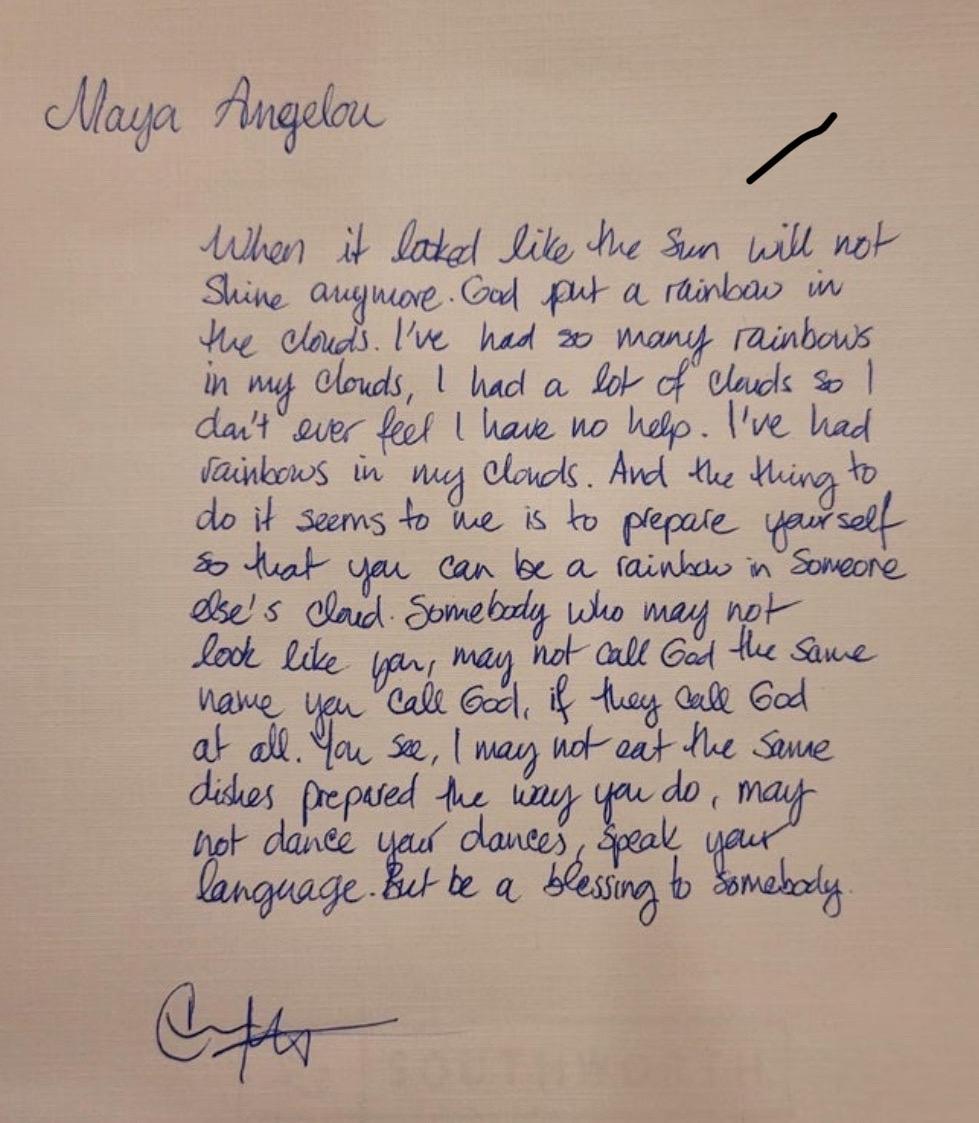 Maya Angelou
When it looked like the Sun will not
Shine anymore. God put a rainbow in
the clouds. I've had so many rainbows
in my clouds, I had a lot of clouds so I
don't ever feel I have no help. I've had
rainbows in my clouds. And the thing to
do it seems to me is to prepare yourself
so that you can be a rainbow in Someone
else's cloud. Somebody who may not
look like you, may not call God the same
name you call God, if they call God
at all. You see, I may not eat the same
dishes prepared the way you do, may
not dance your dances, speak your
language. But be a blessing to somebody.